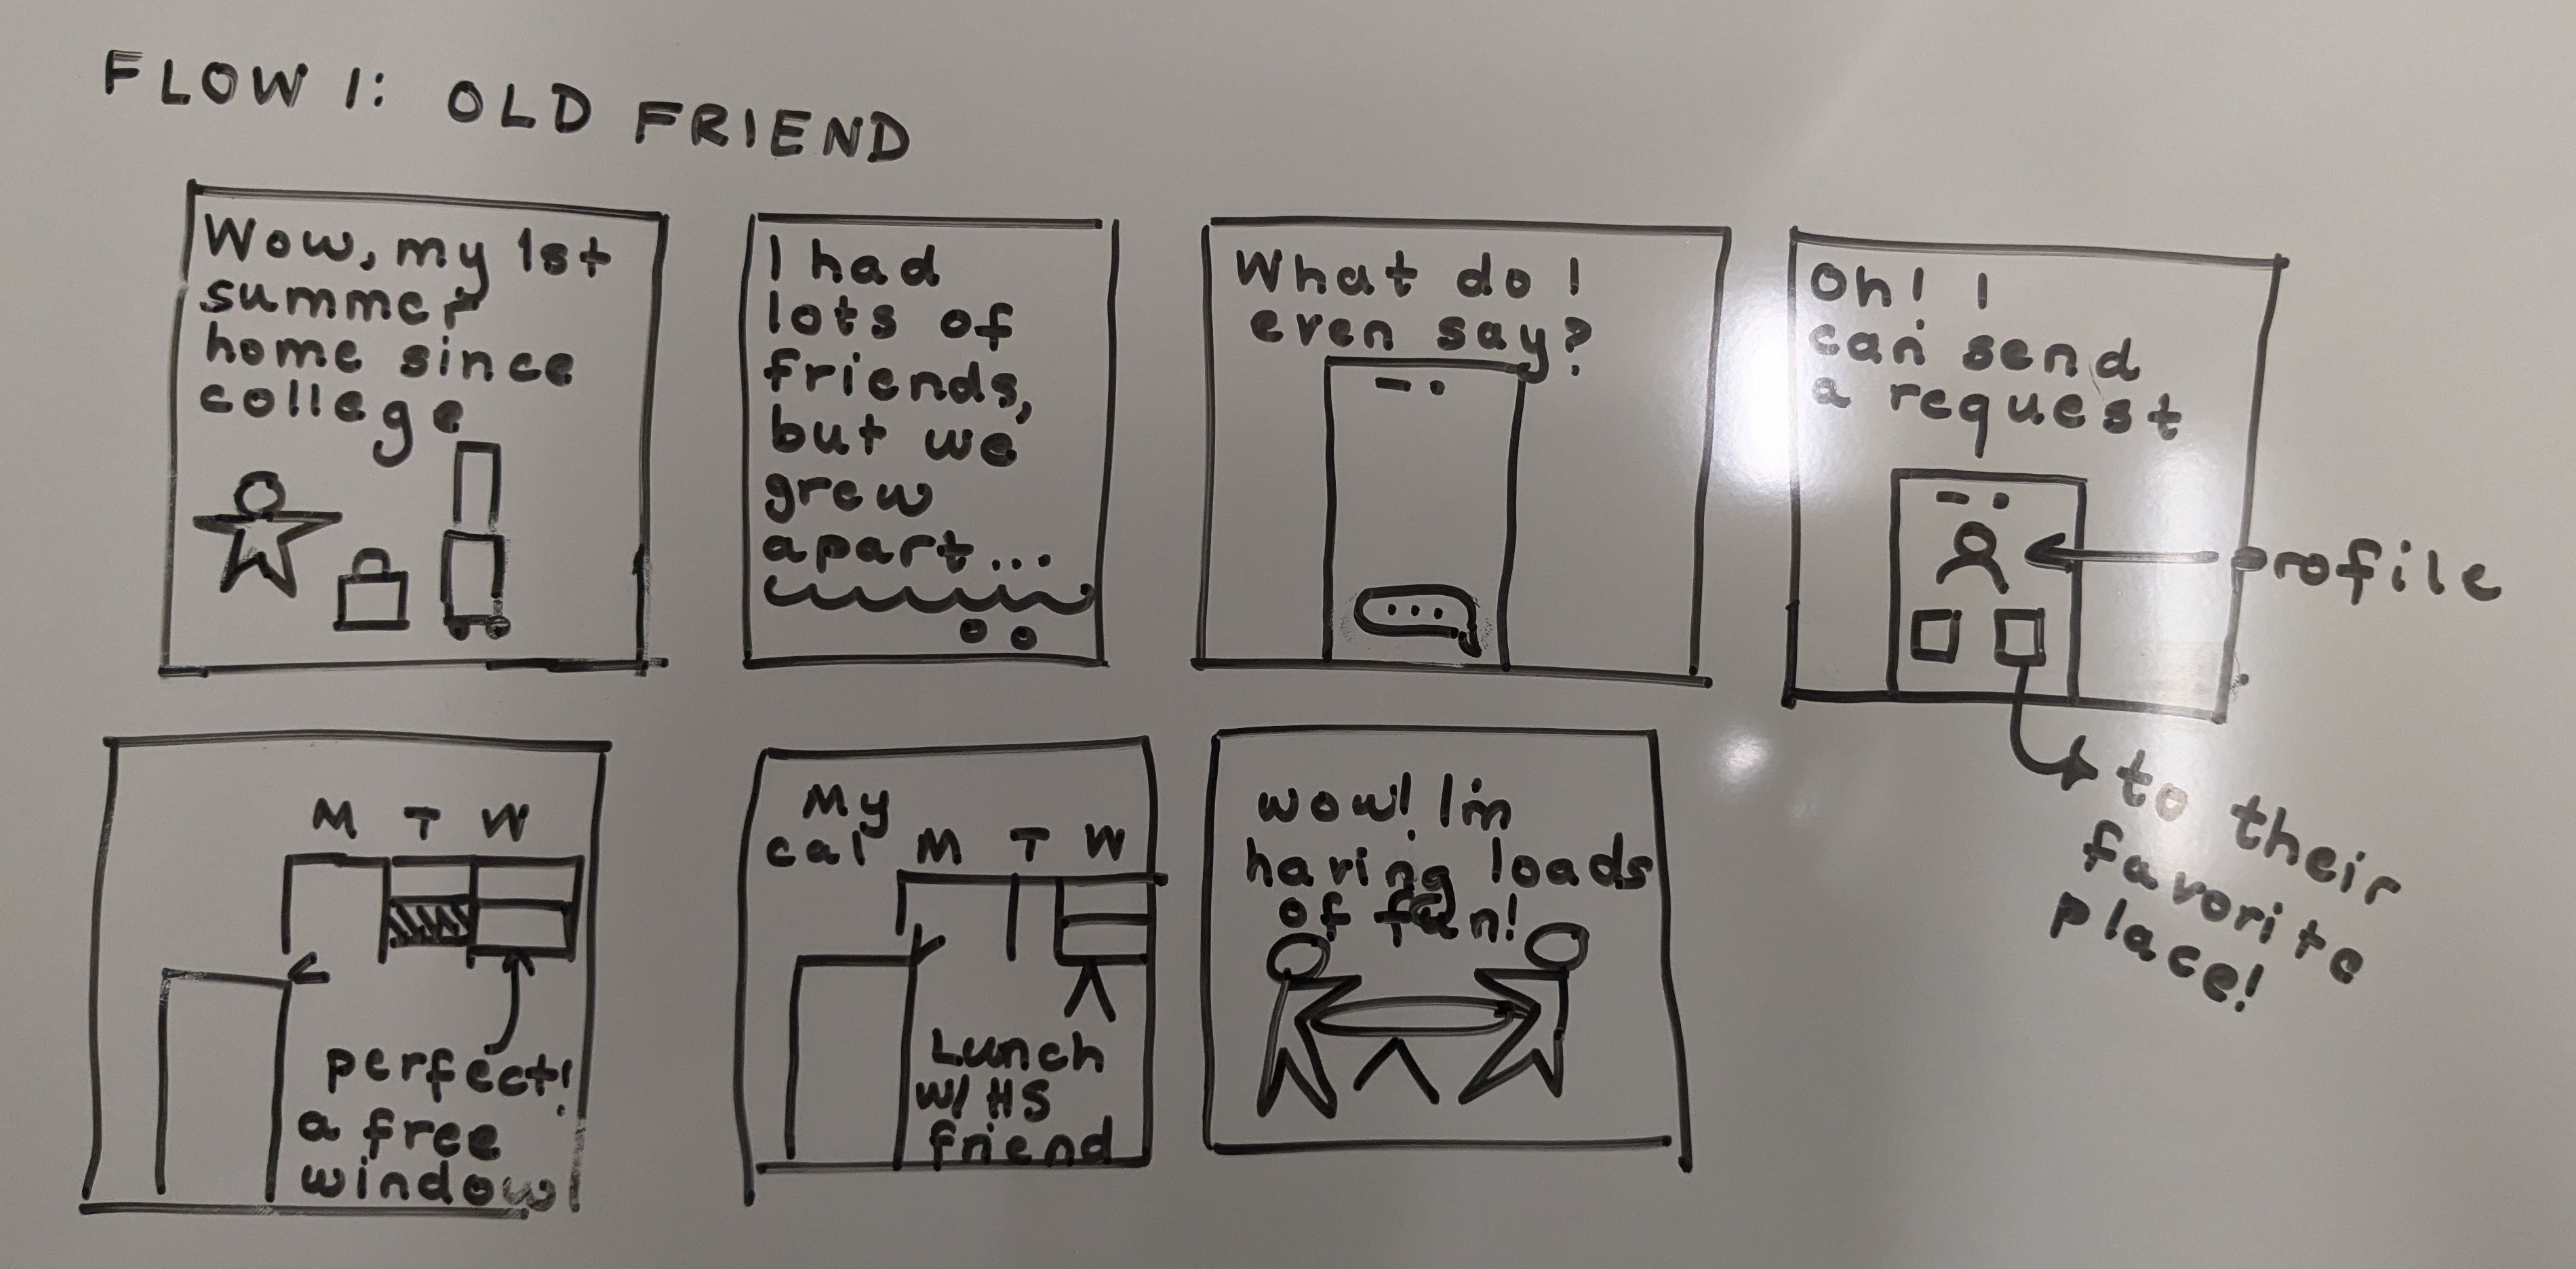 FLOW 1: OLD FRIEND
Wow, my 1st
summer
home since
college
I had
lots of
friends,
but we
grew
apart...
What do I
even say?
...
Oh! I
can send
a request
profile
to their
favorite
place!
M T W
perfect!
a free
window!
My
cal
M T W
Lunch
w/ HS
friend
wow! I'm
having loads
of fun!